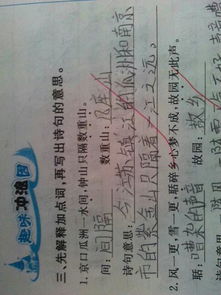 趣味冲浪园
三、先解释加点词,再写出诗句的意思。
1. 京口瓜洲一水间,钟山只隔数重山。
间:间隔 数重山:几座山
诗句意思:今江苏镇江的瓜洲和南京
市的紫金山只隔着一江之远。
2. 风一更,雪一更,聒碎乡心梦不成,故园无此声。
聒:嘈杂的声音 故园:故乡